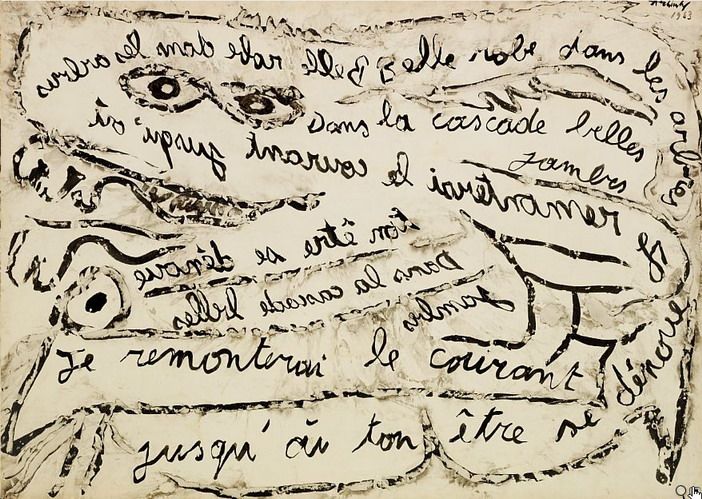 1963
Belle robe dans les arbres
Belle robe dans les arbres
Dans la cascade belles
jambes
Je remonterai le courant jusqu'où
ton être se dénoue
Dans la cascade belles
jambes
Je remonterai le courant
jusqu'où ton être se dénoue